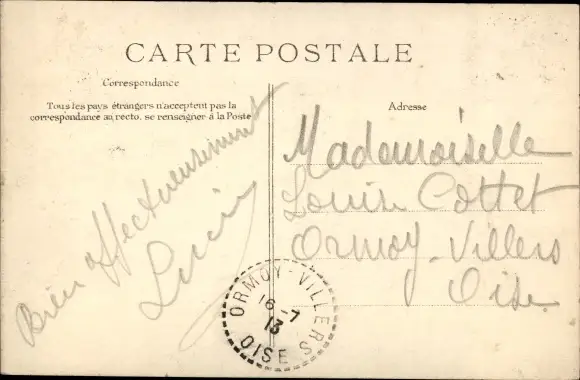 CARTE POSTALE
Correspondance
Tous les pays étrangers n'acceptent pas la
correspondance au recto, se renseigner à la Poste
Adresse
Bien affectueusement
Mademoiselle
Louise Cottet
Ormoy-Villers
Oise.
ORMOY-VILLERS
16-7
13
OISE